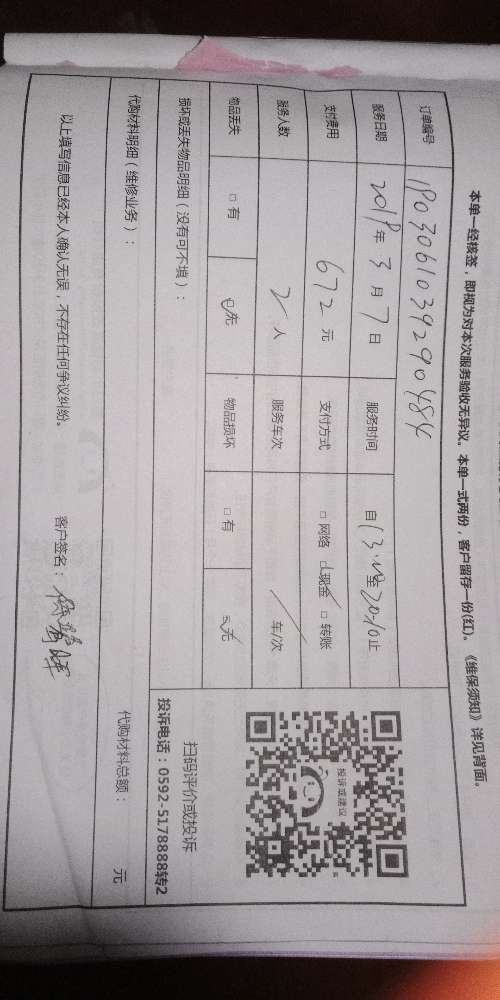 本单一经核签，即视为对本次服务验收无异议。本单一式两份，客户留存一份(红)。《维保须知》详见背面。
订单编号 1803061039290484
服务日期 2018年 3 月 7 日 服务时间 自 13:00至20:10止
支付费用 672 元 支付方式 □ 网络 ☑现金 □ 转账
服务人数 2 人 服务车次 / 车/次
物品丢失 □ 有 ☑无 物品损坏 □ 有 ☑无
损坏或丢失物品明细（没有可不填）：
投诉或建议
扫码评价或投诉
投诉电话：0592-5178888转2
代购材料明细（维修业务）： 代购材料总额： 元
以上填写信息已经本人确认无误，不存在任何争议纠纷。 客户签名：